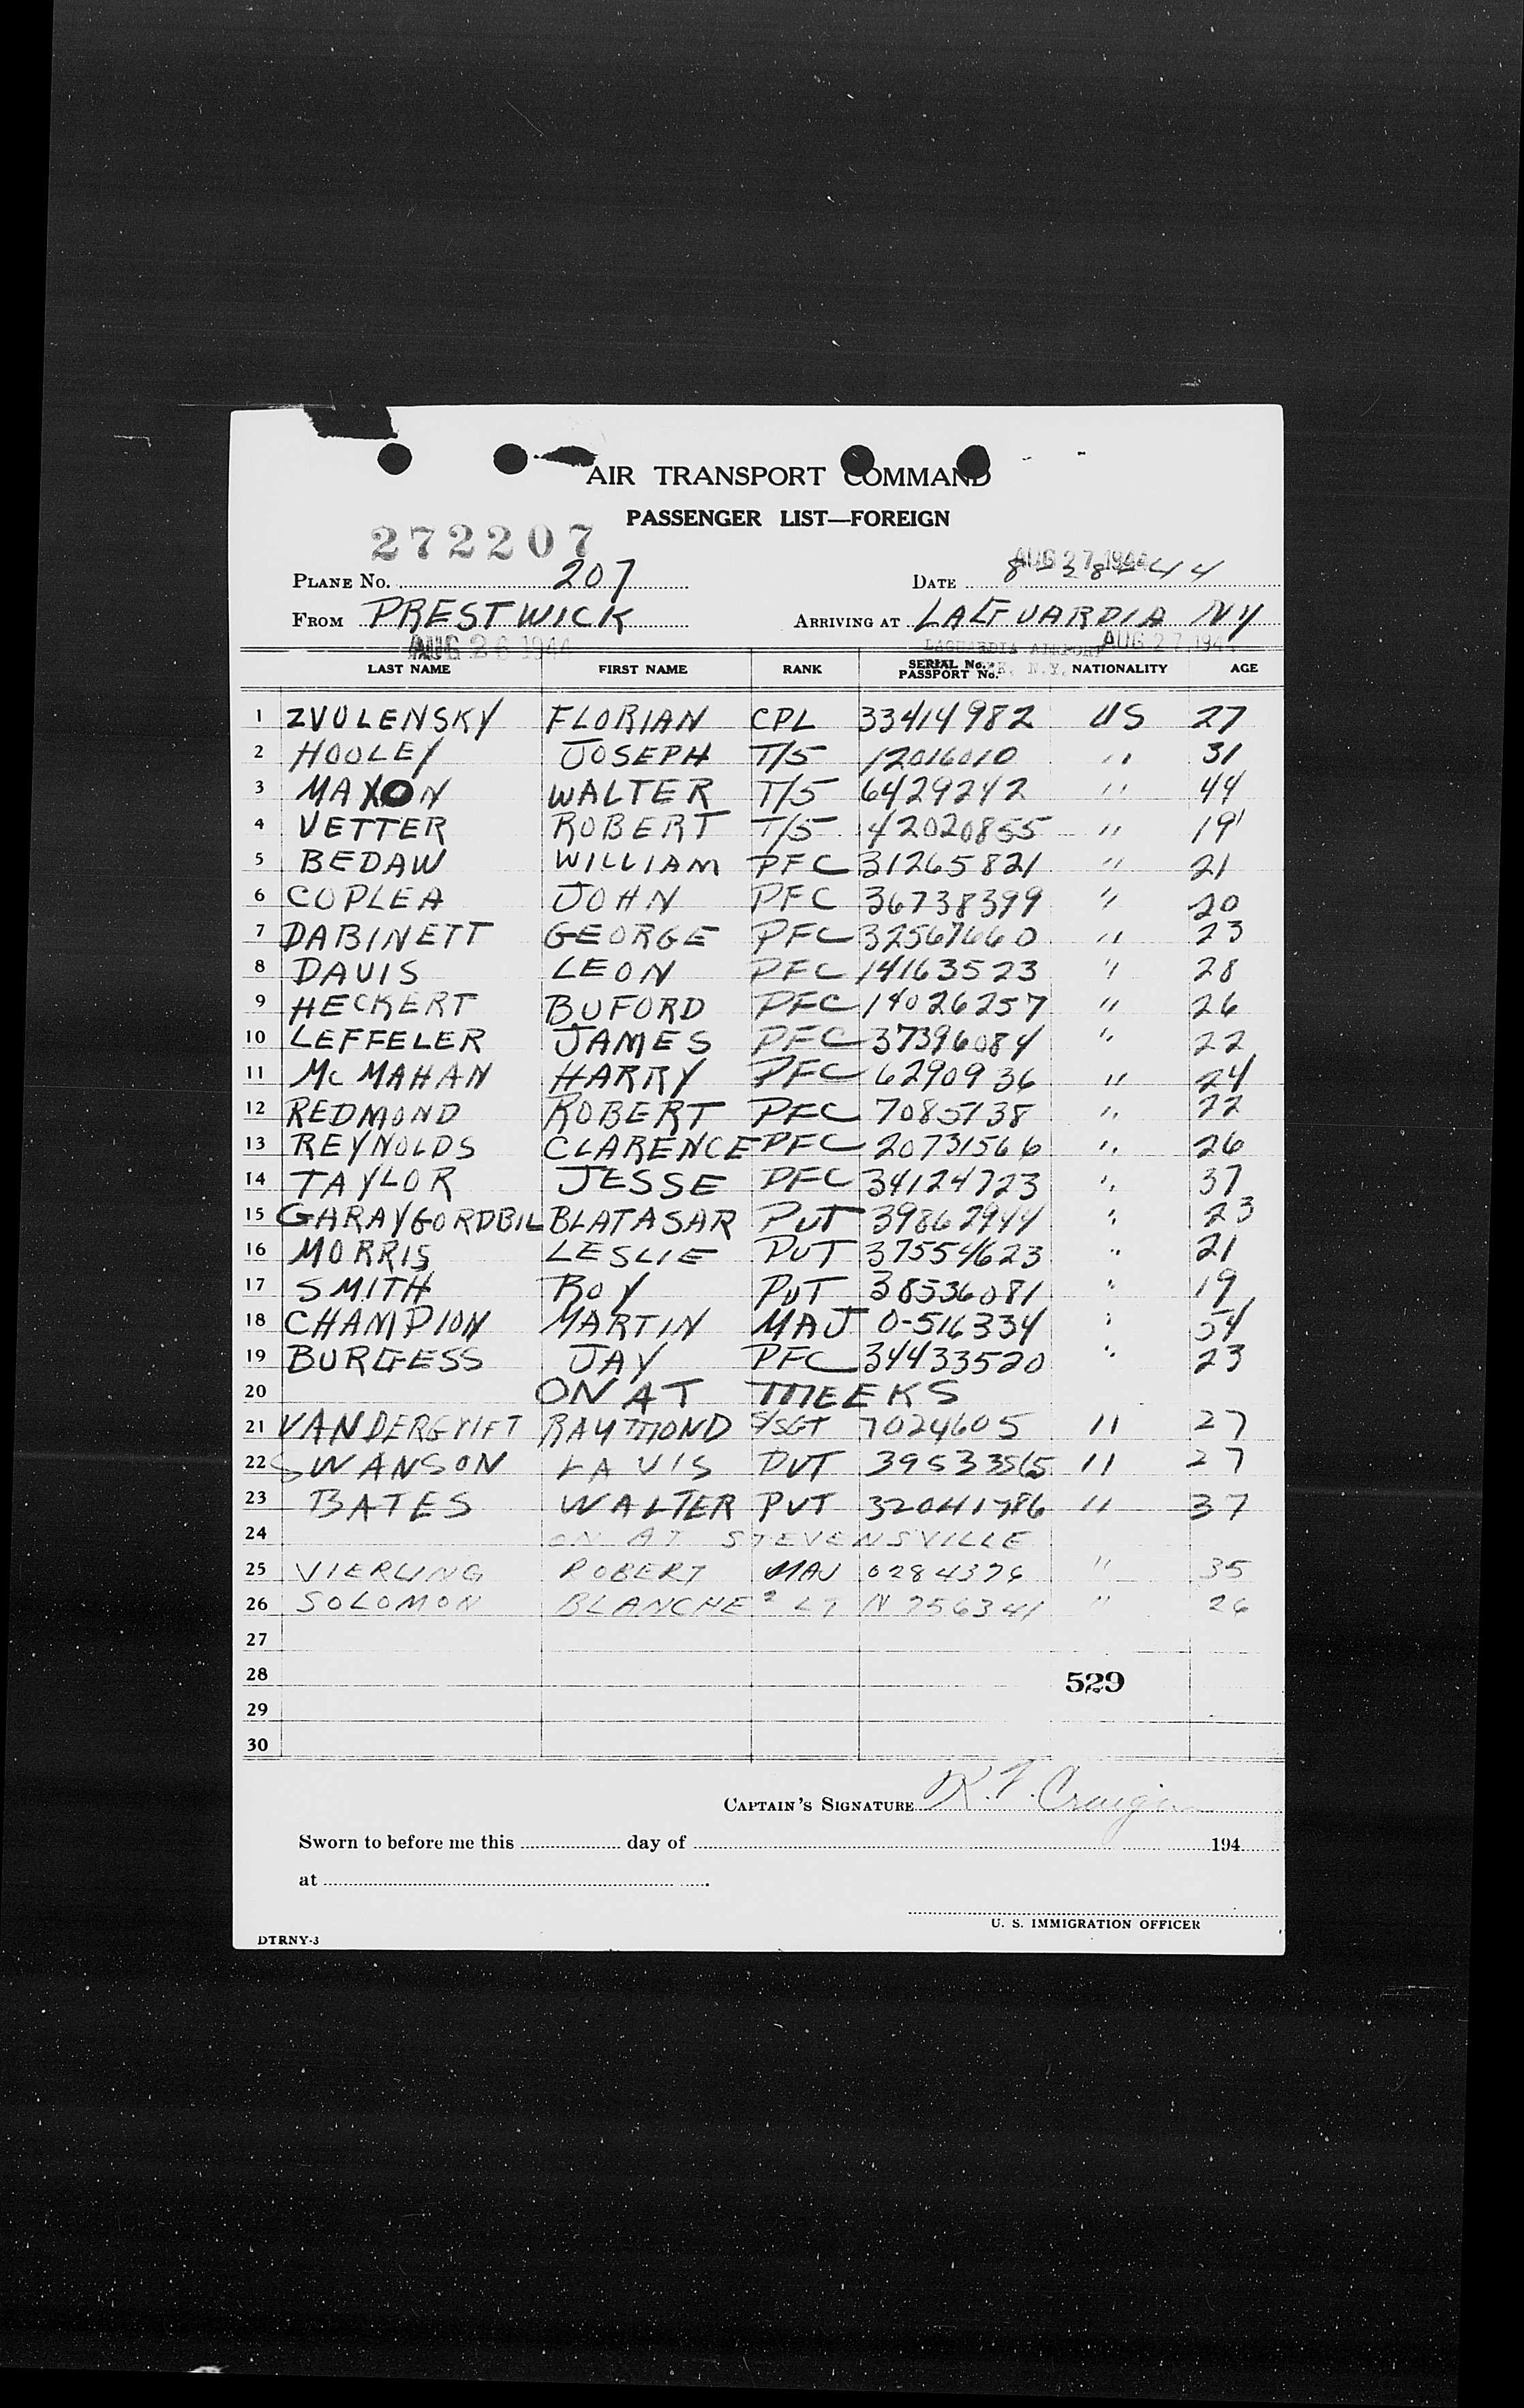 AIR TRANSPORT COMMAND
PASSENGER LIST—FOREIGN
272207
PLANE No. 207 DATE AUG 27 1944
FROM PRESTWICK ARRIVING AT LAGUARDIA NY
AUG 26 1944 LAGUARDIA AIRPORT AUG 27 194
LAST NAME FIRST NAME RANK SERIAL No. PASSPORT No. N.Y. NATIONALITY AGE
1 ZVOLENSKY FLORIAN CPL 33414982 US 27
2 HOOLEY JOSEPH T/5 12016010 " 31
3 MAXON WALTER T/5 6429242 " 44
4 VETTER ROBERT T/5 42020855 " 19
5 BEDAW WILLIAM PFC 31265821 " 21
6 COPLEA JOHN PFC 36738399 " 20
7 DABINETT GEORGE PFC 32567660 " 23
8 DAVIS LEON PFC 14163523 " 28
9 HECKERT BUFORD PFC 14026257 " 26
10 LEFFELER JAMES PFC 37396084 " 22
11 Mc MAHAN HARRY PFC 6290936 " 24
12 REDMOND ROBERT PFC 7085738 " 22
13 REYNOLDS CLARENCE PFC 20731566 " 26
14 TAYLOR JESSE PFC 34124723 " 37
15 GARAYGORDBIL BLATASAR PVT 39867944 " 23
16 MORRIS LESLIE PVT 37554623 " 21
17 SMITH ROY PVT 38536081 " 19
18 CHAMPION MARTIN MAJ 0-516334 " 54
19 BURGESS JAY PFC 34433520 " 23
20 ON AT MEEKS
21 VANDERGRIFT RAYMOND S/SGT 7024605 " 27
22 SWANSON LAVIS PVT 39533565 " 27
23 BATES WALTER PVT 32041786 " 37
24 ON AT STEVENSVILLE
25 VIERLING ROBERT MAJ 0284376 " 35
26 SOLOMON BLANCHE 2 LT N 756341 " 26
27
28 529
29
30
CAPTAIN'S SIGNATURE
Sworn to before me this day of 194
at
U. S. IMMIGRATION OFFICER
DTRNY-3